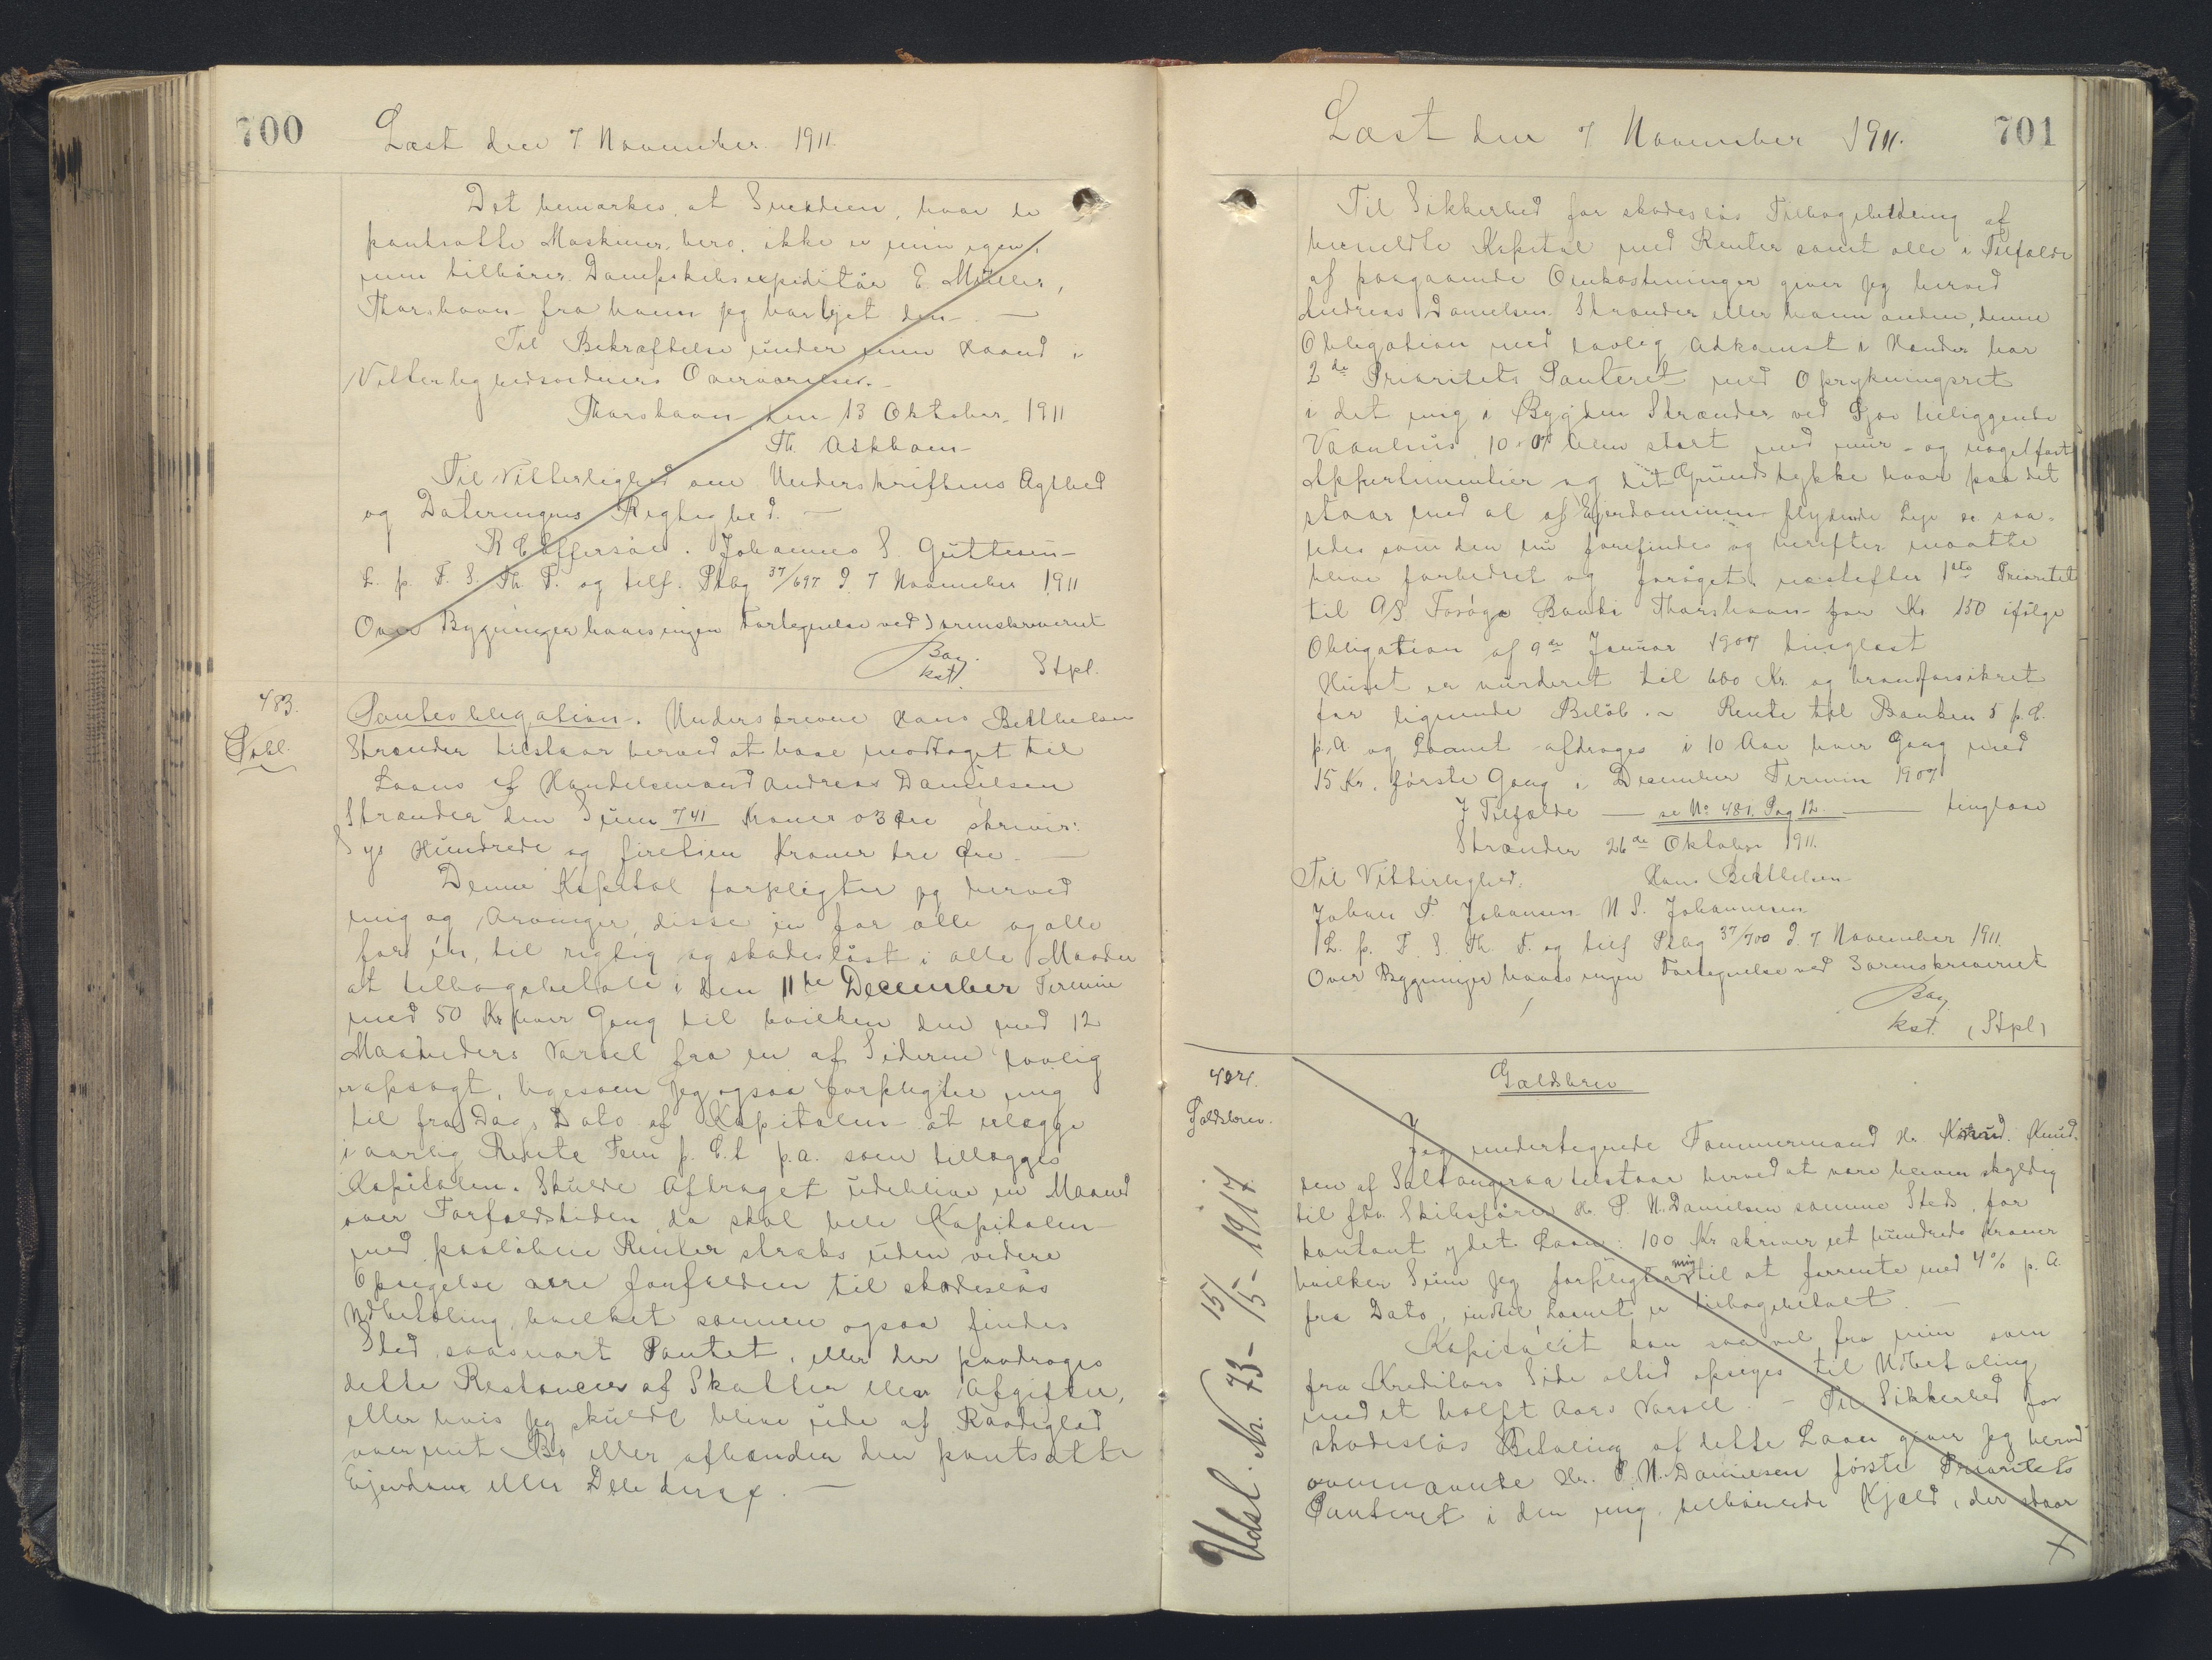 700
Læst den 7 November 1911.
Det bemærkes, at Smedien, hvor de
pantsatte Maskiner bero, ikke er min egen,
men tilhører Dampskibsexpeditør E. Müller,
Thorshavn fra hvem jeg har lejet den. —
Til Bekræftelse under min Haand i
Vitterlighedsvidners Overværelse.
Thorshavn den 13 Oktober 1911
Th. Askham
Til Vitterlighed om Underskriftens Ægthed
og Dateringens Rigtighed. —
R C Effersøe. Johannes S Guttesen
L. p. F. S. Th. T. og tilf. Ptbg 37/697 D. 7 November 1911
Over Bygninger haves ingen Fortegnelse ved Sorenskriveriet
Bay.
kst. Stpl.
483.
Pobl.
Panteobligation. Underskrevne Hans Berthelsen
Strænder tilstaar herved at have modtaget til
Laans af Handelsmand Andreas Danielsen
Strænder den Sum 741 Kroner 03 Øre skriver:
Syv Hundrede og firetien Kroner tre Øre. —
Denne Kapital forpligter jeg herved
mig og Arvinger, disse in for alle og alle
for én, til rigtig og skadesløst i alle Maader
at tilbagebetale i den 11te December Termin
med 50 Kr hver Gang til hvilken den med 12
Maaneders Varsel fra en af Siderne lovlig
er opsagt, ligesom jeg ogsaa forpligter mig
til fra Dags Dato af Kapitalen at erlægge
i aarlig Rente Fem p. C.t p.a. som tillægges
Kapitalen. Skulde Afdraget udeblive en Maaned
over Forfaldstiden, da skal hele Kapitalen
med paaløbne Renter straks uden videre
Opsigelse være forfalden til skadesløs
Udbetaling, hvilket samme ogsaa findes
Sted, saasnart Pantet, eller der paadrages
dette Restancer af Skatter eller Afgifter,
eller hvis jeg skulde blive ude af Raadighed
over mit Bo eller afhænder den pantsatte
Ejendom eller Dele deraf. —
701
Læst den 7 November 1911.
Til Sikkerhed for skadesløs Tilbagebetaling af
bemeldte Kapital med Renter samt alle i Tilfælde
af paagaaende Omkostninger giver jeg herved
Andreas Danielsen Strænder eller hvem anden, denne
Obligation med lovlig Adkomst i Hænder har
2den Prioritets Panteret med Oprykningsret
i det mig i Bygden Strænder ved Sjov beliggende
Vaanhus 10 × 07 Alen stort med mur- og nagelfast
Appertinentier og det Grundstykke hvor paa det
staar med al af Ejendommen flydende Leje se saa-
ledes som den nu forefindes og herefter maatte
blive forbedret og forøget, næstefter 1ste Prioritet
til A/S Færøya Banki Thorshavn for Kr. 150 ifølge
Obligation af 9de Januar 1907 tinglæst
Huset er vurderet til 600 Kr. og brandforsikret
for lignende Beløb. ~ Rente til Banken 5 p.C.
p.A og Laanet afdrages i 10 Aar hver Gang med
15 Kr. første Gang i December Termin 1907
I Tilfælde — se No 481. Pag 12. — tinglæse
Strænder 26de Oktober 1911.
Til Vitterlighed: Hans Berthelsen
Johan P. Johansen N S. Johannesen
L. p. F. S. Th. T. og tilf Ptbg 37/700 D. 7 November 1911.
Over Bygninger haves ingen Fortegnelse ved Sorenskriveriet
Bay
kst. (Stpl)
484.
Gældsbrev.
Udsl. Nr. 73- 15/5- 1917.
Gældsbrev
Jeg undertegnede Tømmermand Hr. Knud. Knud-
sen af Saltangeraa tilstaar herved at være bleven skyldig
til fhv. Skibsfører Hr. P. N. Danielsen samme Steds, for
kontant ydet Laan: 100 Kr skriver et hundrede Kroner
hvilken Sum jeg forpligter mig til at forrente med 4% p. A.
fra Dato, indtil Laanet er tilbagebetalt. —
Kapitalet kan saavel fra min som
fra Kreditors Side altid opsiges til Udbetaling
med et halft Aars Varsel. — Til Sikkerhed for
skadesløs Betaling af dette Laan giver jeg herved
ovennævnte Hr. P. N. Danielsen første Prioritets
Panteret i den mig tilhørende Kjæld, der staar